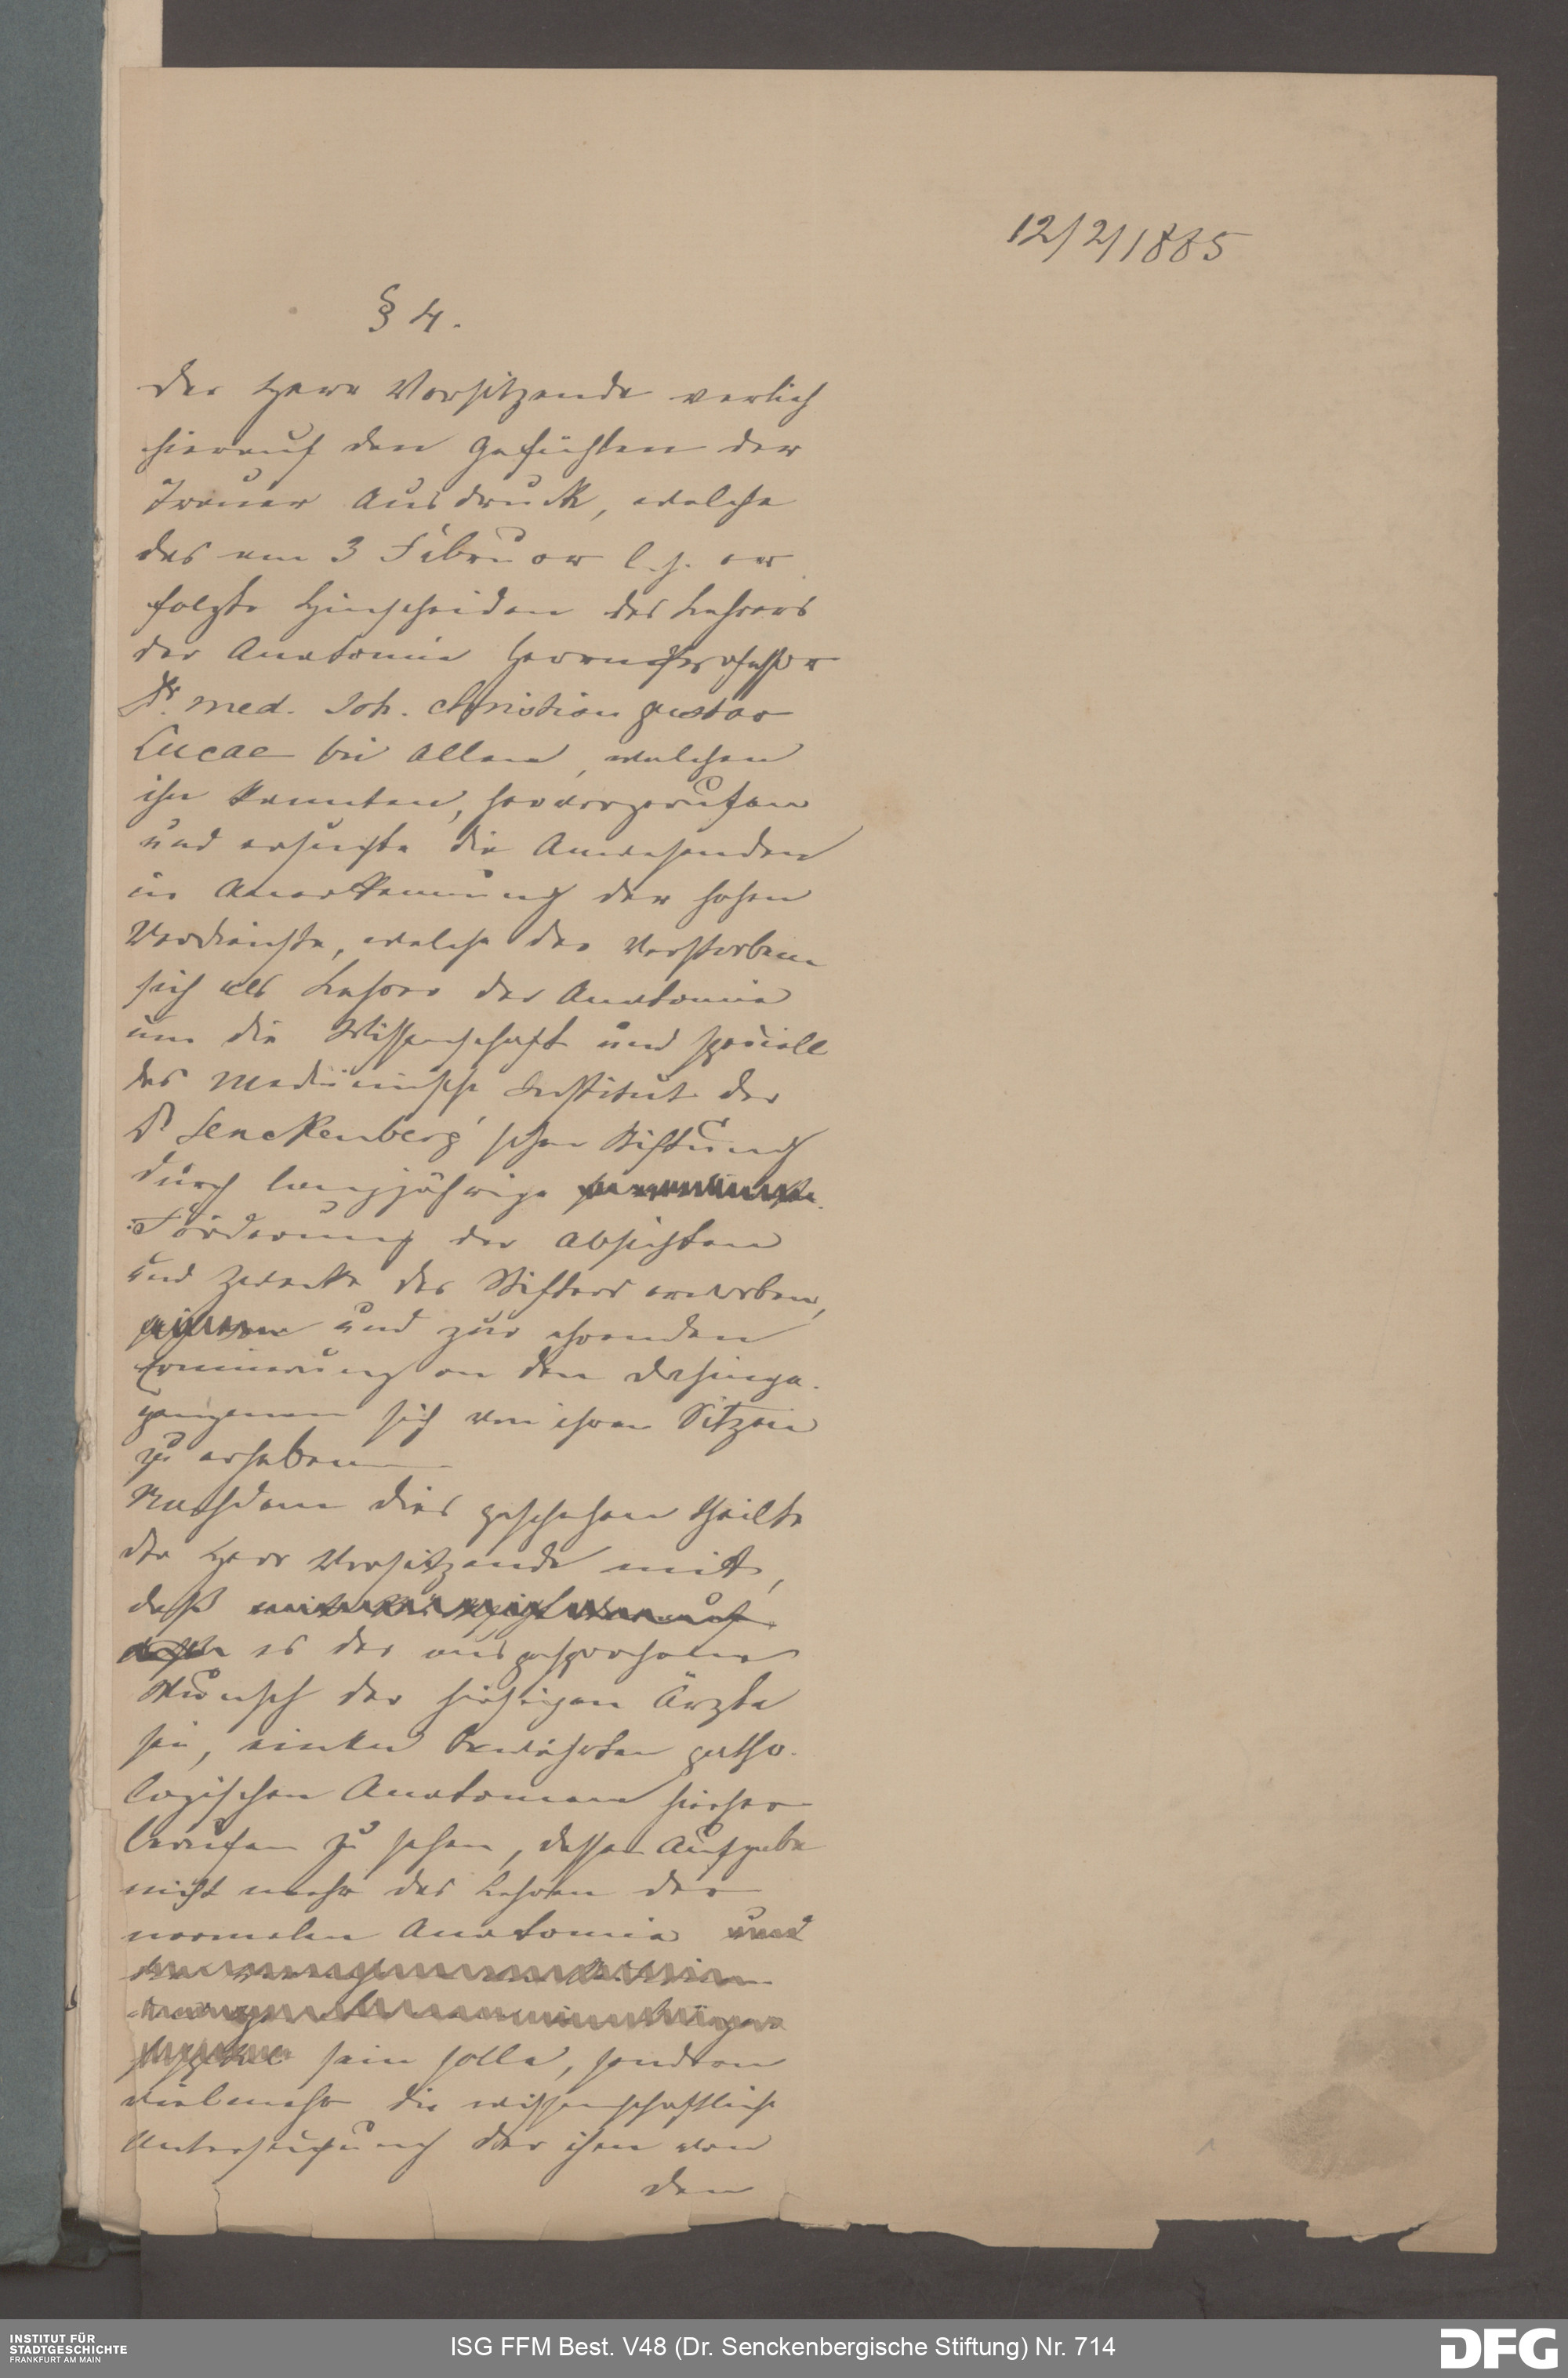 12/2/1885
§ 4.
Der Herr Vorsitzende verlieh
hierauf den Gefühlen der
Trauer Ausdruck, welche
das am 3 Februar l. J. er
folgte Hinscheiden des Lehrers
der Anatomie Herrn Professor
Dr. med. Joh. Christian Gustav
Lucae bei Allen, welchen
ihn kannten, hervorgerufen
und ersuchte die Anwesenden
in Anerkennung der hohen
Verdienste, welche der Verstorbene
sich als Lehrer der Anatomie
um die Wissenschaft und speciell
das Medicinische Institut der
Dr Senckenberg'schen Stiftung
durch langjährige
Förderung der Absichten
und Zwecke des Stifters erworben,
und zur ehrenden
Erinnerung an den Dahinge-
gangenen sich von ihren Sitzen
zu erheben
Nachdem dies geschehen theilte
der Herr Vorsitzende mit,
daß
es der ausgesprochene
Wunsch der hiesigen Ärzte
sei, einen bewährten patho-
logischen Anatomen hierher
berufen zu sehen, dessen Aufgabe
nicht mehr das Lehren der
normalen Anatomie und
sein solle, sondern
vielmehr die wissenschaftliche
Untersuchung der ihm von
den
INSTITUT FÜR
STADTGESCHICHTE
FRANKFURT AM MAIN
ISG FFM Best. V48 (Dr. Senckenbergische Stiftung) Nr. 714
DFG